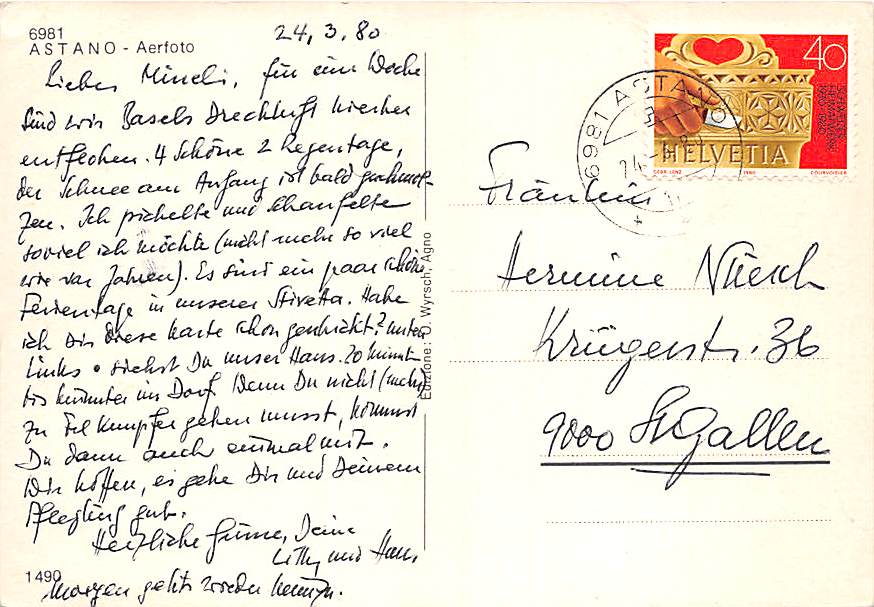 6981
ASTANO - Aerfoto
24.3.80
Liebes Mineli, für eine Woche
sind wir Basels Drecksluft hierher
entflohen. 4 Schöne 2 Regentage,
der Schnee am Anfang ist bald geschmol-
zen. Ich pickelte und schaufelte
soviel ich möchte (nicht mehr so viel
wie vor Jahren). Es sind ein paar schöne
Ferientage in unserer Stivetta. Habe
ich Dir diese Karte schon geschickt? unten
links • siehst Du unser Haus. 20 Minuten
bis hinunter ins Dorf. Wenn Du nicht (mehr)
zu Frl Kumpfer gehen musst, kommst
Du dann auch einmal mit.
Wir hoffen, es gehe Dir und Deinem
Pflegling gut.
Herzliche Grüsse, Deine
Lilly und Hans
1490
Morgen gehts wieder heimzu.
Edizione: O. Wyrschi, Agno
40
SCHWEIZER HEIMATWERK
1930-1980
HELVETIA
GEBR. LENZ 1980 COURVOISIER
6981 ASTANO
Fräulein
Hermine Nüesch
Krügerstr. 36
9000 St Gallen